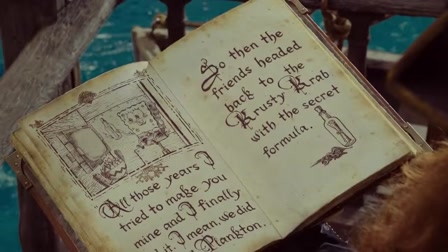 All those years I
tried to make you
mine and I finally
did it. I mean, we did
Plankton.
So then the
friends headed
back to the
Krusty Krab
with the secret
formula.